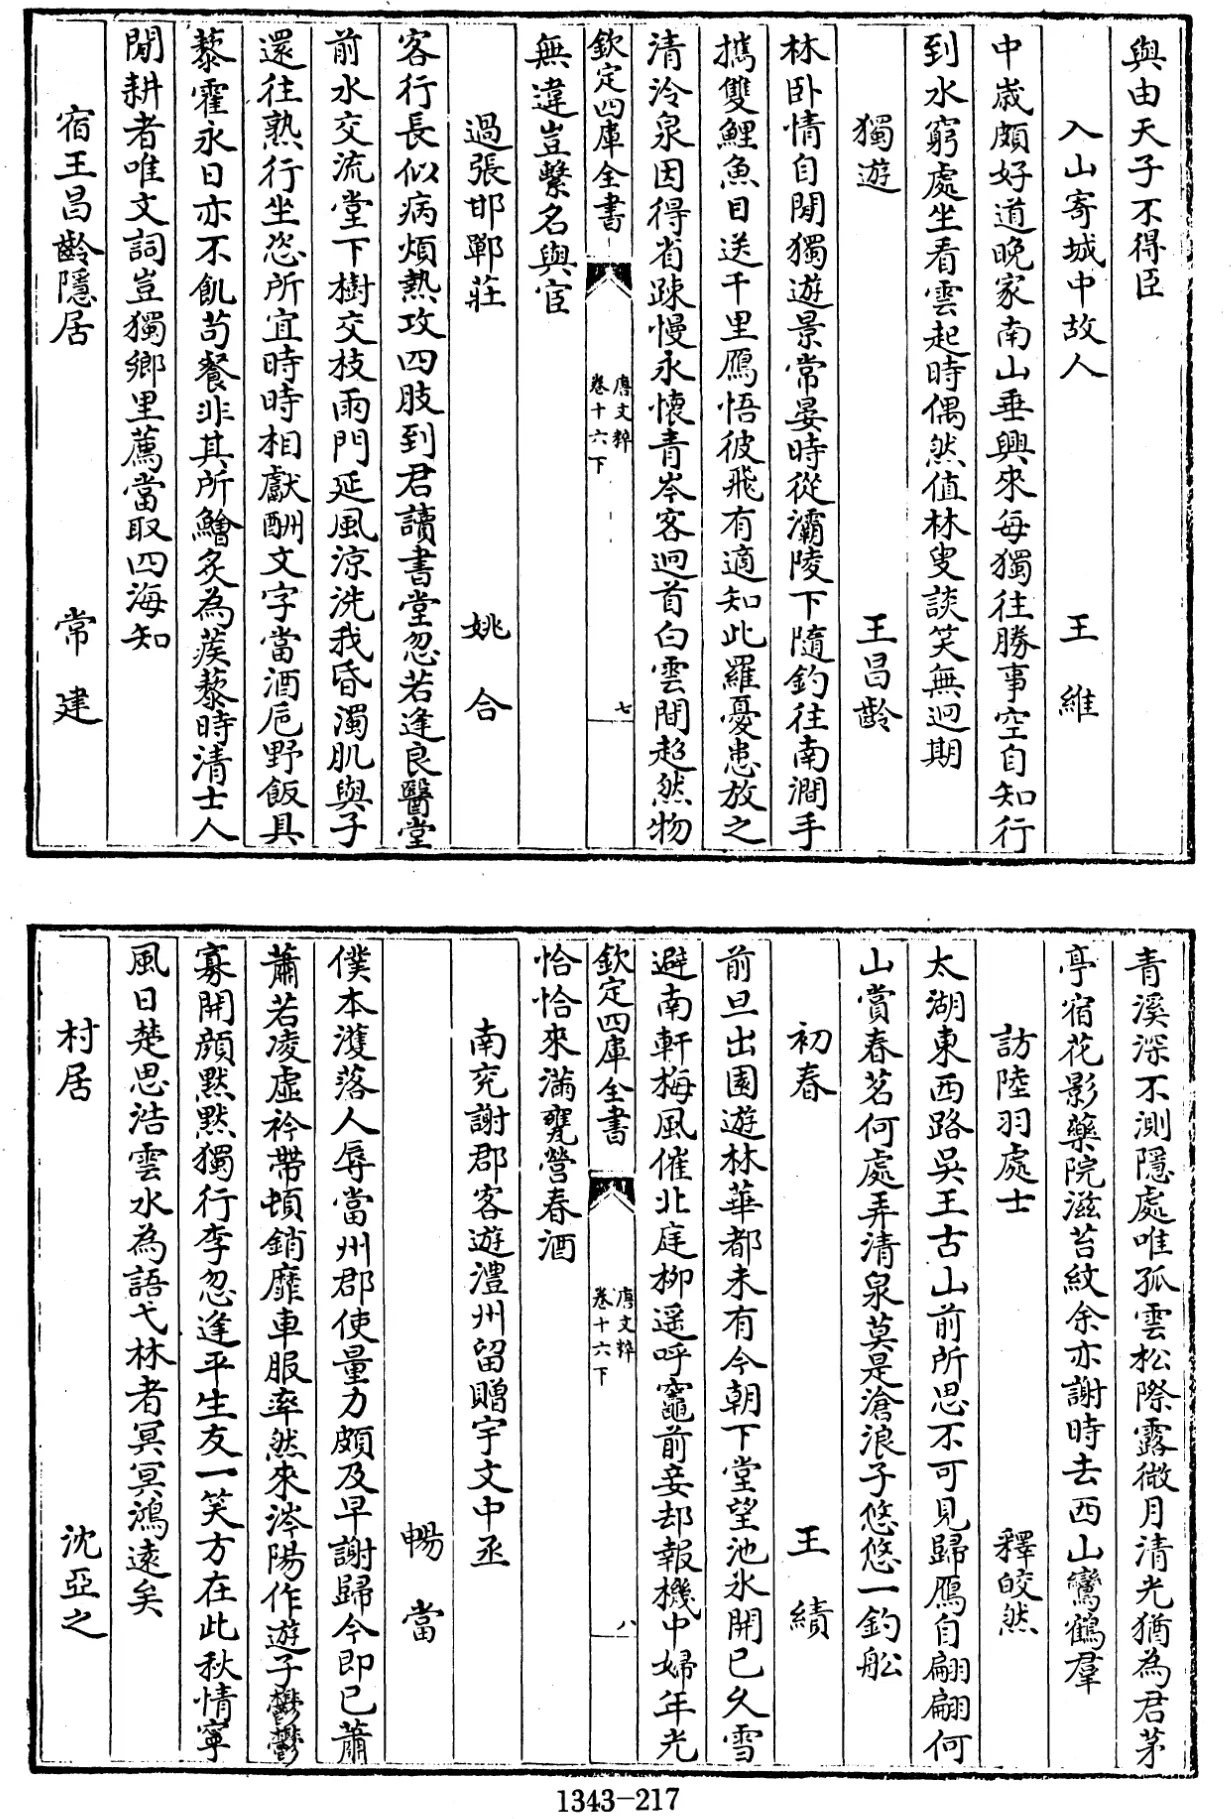 與由天子不得臣
入山寄城中故人 王維
中歲頗好道晚家南山垂興來每獨往勝事空自知行
到水窮處坐看雲起時偶然值林叟談笑無迴期
獨遊 王昌齡
林卧情自閒獨遊景常晏時從灞陵下隨釣往南澗手
攜雙鯉魚目送千里鴈悟彼飛有適知此羅憂患放之
清泠泉因得省疎慢永懷青岑客迴首白雲間超然物
欽定四庫全書
唐文粹
卷十六下
七
無違豈繫名與宦
過張邯鄲莊 姚合
客行長似病煩熱攻四肢到君讀書堂忽若逢良醫堂
前水交流堂下樹交枝雨門延風涼洗我昏濁肌與子
還往熟行坐恣所宜時時相獻酬文字當酒巵野飯具
藜霍永日亦不飢茍餐非其所鱠炙為蒺藜時清士人
閒耕者唯文詞豈獨鄉里薦當取四海知
宿王昌齡隱居 常建
青溪深不測隱處唯孤雲松際露微月清光猶為君茅
亭宿花影藥院滋苔紋余亦謝時去西山鸞鶴羣
訪陸羽處士 釋皎然
太湖東西路吳王古山前所思不可見歸鴈自翩翩何
山賞春茗何處弄清泉莫是滄浪子悠悠一釣船
初春 王績
前旦出園遊林華都未有今朝下堂望池氷開已久雪
避南軒梅風催北庭柳遥呼竈前妾却報機中婦年光
欽定四庫全書
唐文粹
卷十六下
八
恰恰來滿甕營春酒
南充謝郡客遊澧州留贈宇文中丞
暢當
僕本濩落人辱當州郡使量力頗及早謝歸今即已蕭
蕭若凌虚衿帶頓銷靡車服率然來涔陽作遊子鬱鬱
寡開顔默默獨行李忽逢平生友一笑方在此秋情寧
風日楚思浩雲水為語弋林者冥冥鴻遠矣
村居 沈亞之
1343-217